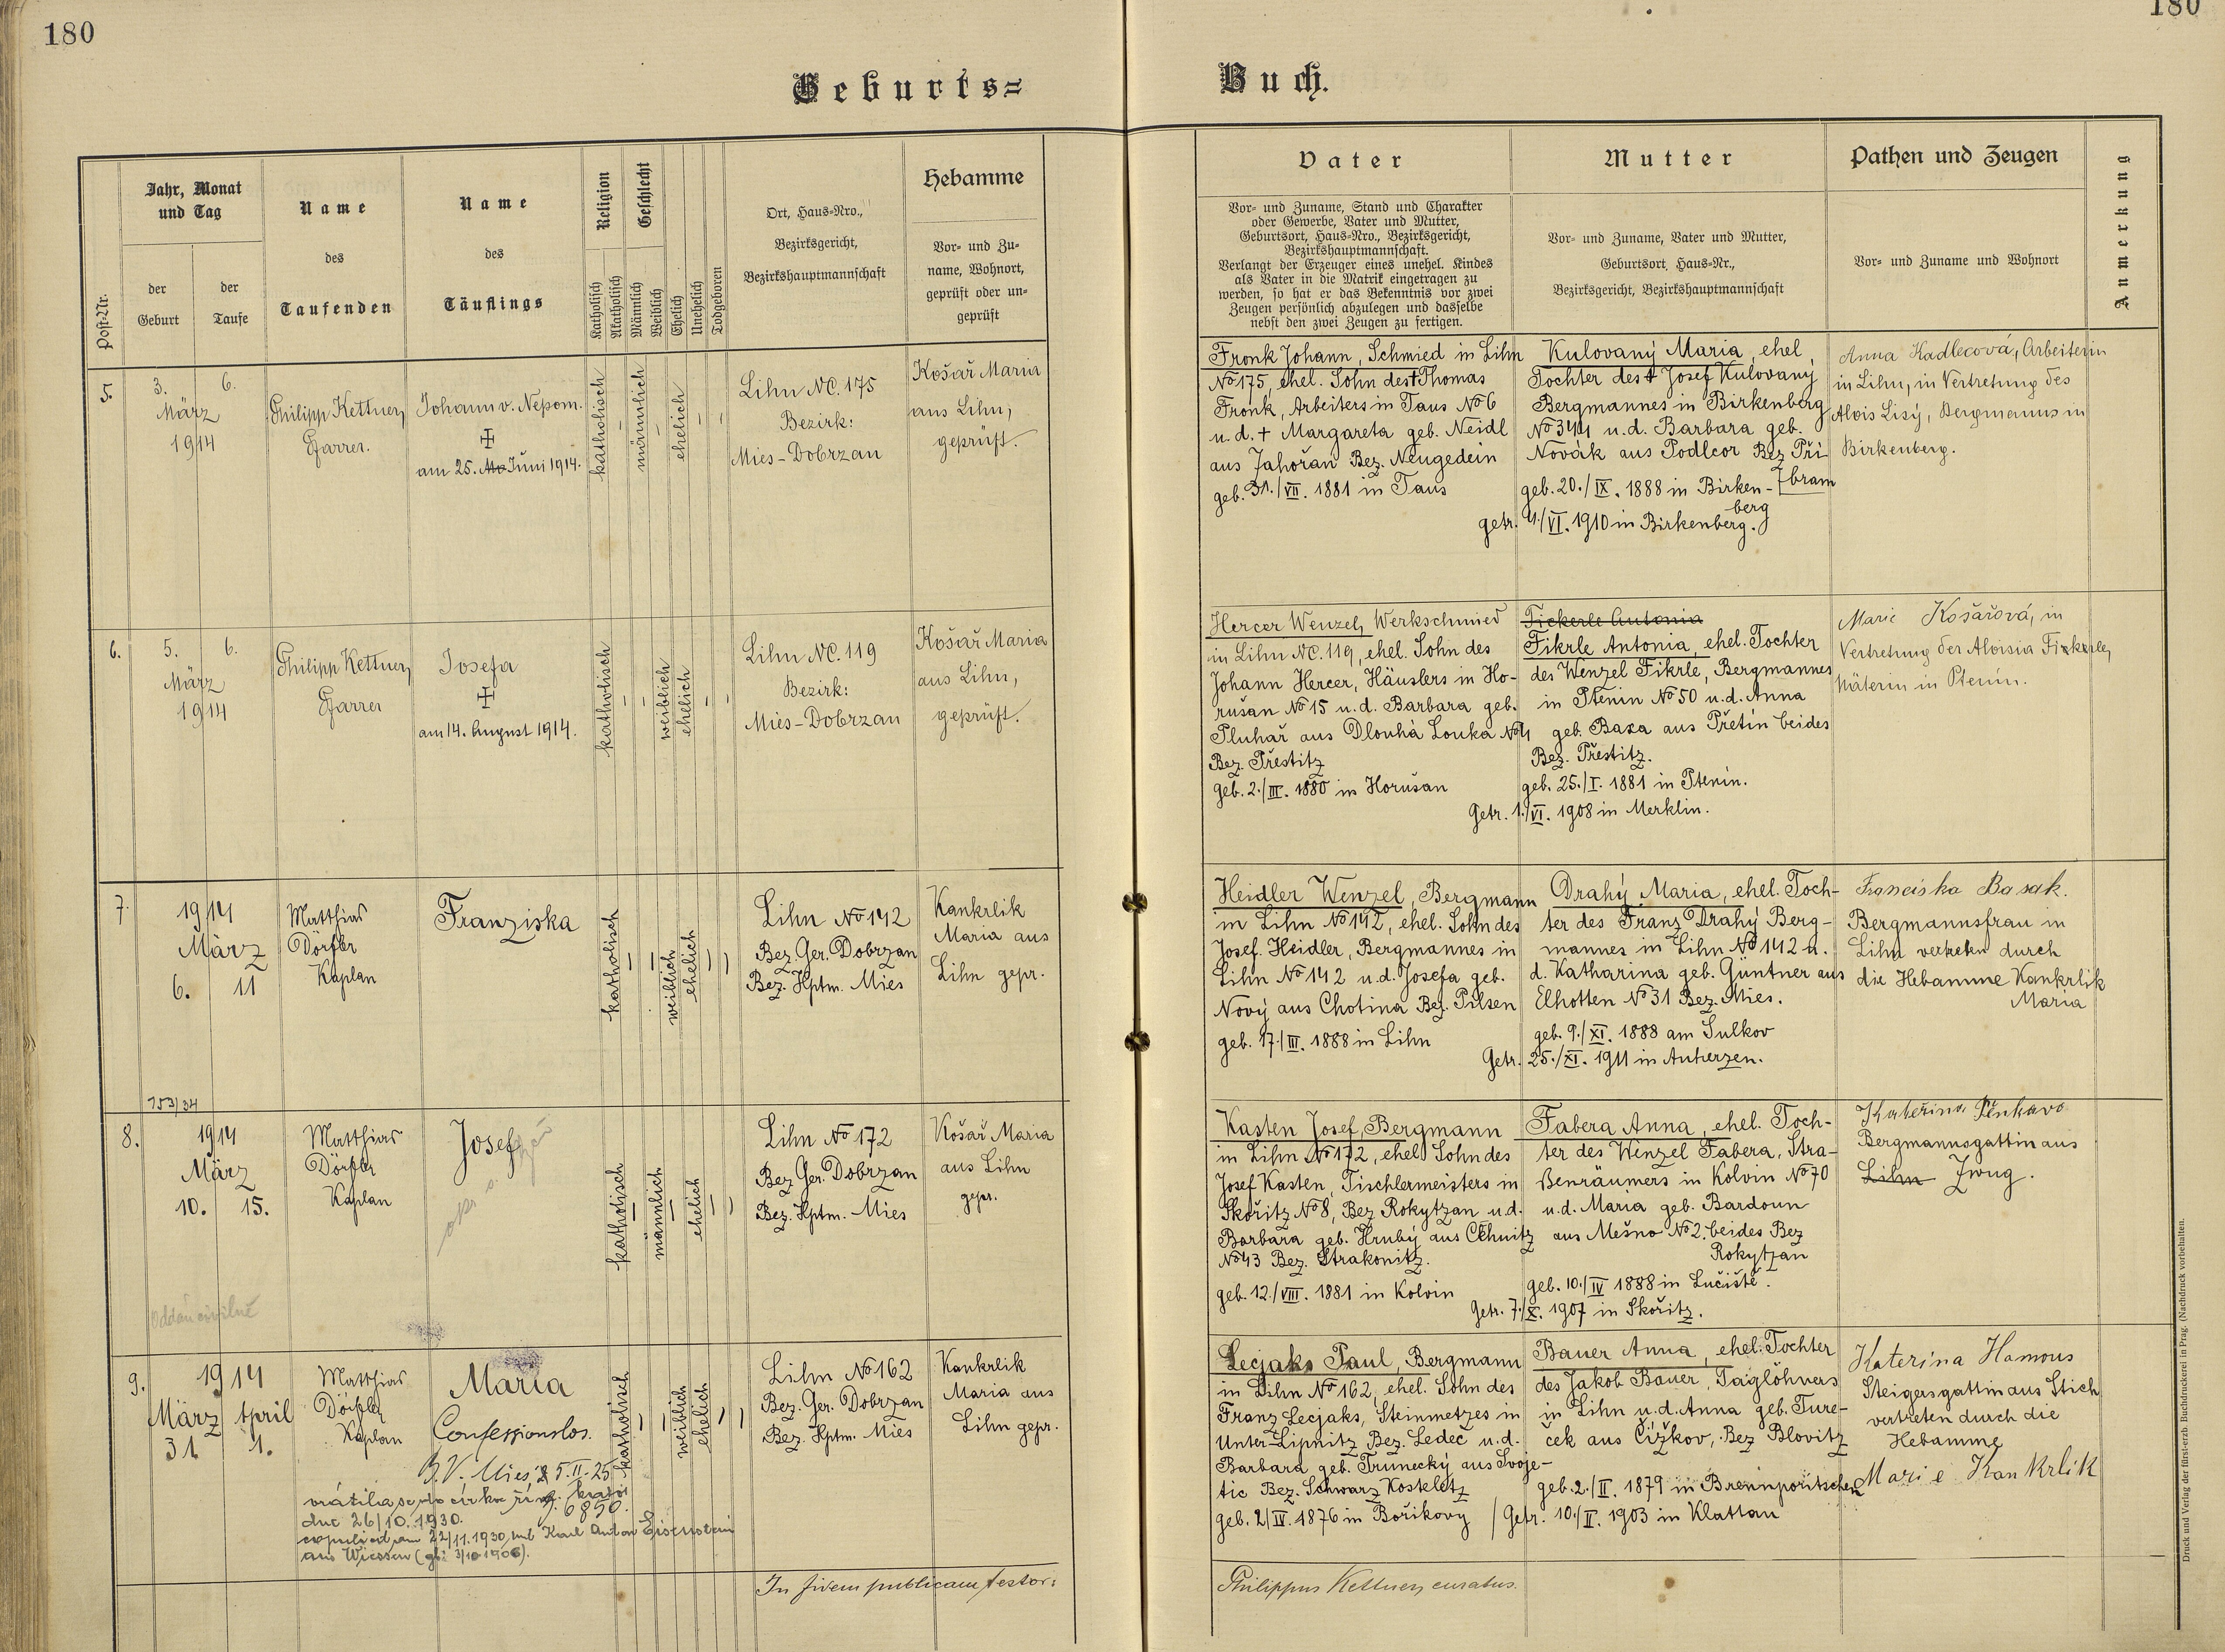 180
180
Geburts=
Buch.
Post-Nr.
Jahr, Monat
und Tag
der
Geburt
der
Taufe
Name
des
Taufenden
Name
des
Täuflings
Religion
Katholisch
Akatholisch
Geschlecht
Männlich
Weiblich
Ehelich
Unehelich
Todgeboren
Ort, Haus=Nro.,
Bezirksgericht,
Bezirkshauptmannschaft
Hebamme
Vor= und Zu=
name, Wohnort,
geprüft oder un=
geprüft
Vater
Vor= und Zuname, Stand und Charakter
oder Gewerbe, Vater und Mutter,
Geburtsort, Haus=Nro., Bezirksgericht,
Bezirkshauptmannschaft.
Verlangt der Erzeuger eines unehel. Kindes
als Vater in die Matrik eingetragen zu
werden, so hat er das Bekenntnis vor zwei
Zeugen persönlich abzulegen und dasselbe
nebst den zwei Zeugen zu fertigen.
Mutter
Vor= und Zuname, Vater und Mutter,
Geburtsort, Haus=Nr.,
Bezirksgericht, Bezirkshauptmannschaft
Pathen und Zeugen
Vor= und Zuname und Wohnort
Anmerkung
5.
3. 6.
März
1914
Philipp Kettner,
Pfarrer.
Johann v. Nepom.
am 25. Juni 1914.
katholisch
männlich
ehelich
Lihn NC. 175
Bezirk:
Mies-Dobrzan
Košař Maria
aus Lihn,
geprüft.
Fronk Johann, Schmied in Lihn
No 175, ehel. Sohn des † Thomas
Fronk, Arbeiters in Taus No 6
u. d. † Margareta geb. Neidl
aus Jahořan Bez. Neugedein
geb. 31./VII. 1881 in Taus
Kulovaný Maria, ehel.
Tochter des † Josef Kulovaný
Bergmannes in Birkenberg
No 344 u. d. Barbara geb.
Novák aus Podlcor Bez Při
bram
geb. 20./IX. 1888 in Birken-
berg
getr. 4./VI. 1910 in Birkenberg.
Anna Kadlecová, Arbeiterin
in Lihn, in Vertretung des
Alois Lisý, Bergmanns in
Birkenberg.
6.
5. 6.
März
1914
Philipp Kettner,
Pfarrer
Josefa
am 14. August 1914.
katholisch
weiblich
ehelich
Lihn NC. 119
Bezirk:
Mies-Dobrzan
Košař Maria
aus Lihn,
geprüft.
Hercer Wenzel, Werkschmied
in Lihn NC. 119, ehel. Sohn des
Johann Hercer, Häuslers in Ho-
rušan No 15 u. d. Barbara geb.
Pluhař aus Dlouhá Louka No 4
Bez. Přestitz
geb. 2./III. 1880 in Horušan
Fickerle Antonia
Fikrle Antonia, ehel. Tochter
des Wenzel Fikrle, Bergmannes
in Ptenin No 50 u. d. Anna
geb. Baxa aus Přetín beides
Bez. Přestitz.
geb. 25./I. 1881 in Ptenin.
Getr. 1./VI. 1908 in Merklin.
Marie Košařová, in
Vertretung der Aloisia
Näterin in Ptenín.
7.
1914
März
6. 11
Matthias
Dörfler
Kaplan
Franziska
katholisch
weiblich
ehelich
Lihn No 142
Bez. Ger. Dobrzan
Bez. Hptm. Mies
Kankrlik
Maria aus
Lihn gepr.
Heidler Wenzel, Bergmann
in Lihn No 142, ehel. Sohn des
Josef Heidler, Bergmannes in
Lihn No 142 u. d. Josefa geb.
Nový aus Chotina Bez. Pilsen
geb. 17./III. 1888 in Lihn
Drahý Maria, ehel. Toch-
ter des Franz Drahý Berg-
mannes in Lihn No 142 u.
d. Katharina geb. Güntner aus
Elhotten No 31 Bez. Mies.
geb. 9./XI. 1888 am Sulkov
Getr. 25./XI. 1911 in Auherzen.
Franciska Basak.
Bergmannsfrau in
Lihn vertreten durch
die Hebamme Kankrlik
Maria
153/34
8.
1914
März
10. 15.
Matthias
Dörfler
Kaplan
Josef
katholisch
männlich
ehelich
Lihn No 172
Bez. Ger. Dobrzan
Bez. Hptm. Mies
Košař Maria
aus Lihn
gepr.
Kasten Josef, Bergmann
in Lihn No 172, ehel. Sohn des
Josef Kasten, Tischlermeisters in
Skořitz No 8, Bez Rokytzan u. d.
Barbara geb. Hrubý aus Cehnitz
No 43 Bez. Strakonitz.
geb. 12./VIII. 1881 in Kolvin
Fabera Anna, ehel. Toch-
ter des Wenzel Fabera, Stra-
ßenräumers in Kolvin No 70
u. d. Maria geb. Bardoun
aus Mešno No 2. beides Bez
Rokytzan
geb. 10./IV 1888 in Lučiště.
Getr. 7./X. 1907 in Skořitz.
Kateřina Pěnkava
Bergmannsgattin aus
Lihn Zwug.
Oddán civilně
9.
1914
März April
31 1.
Matthias
Dörfler
Kaplan
Maria
Confessionslos.
B. V. Mies 5. II. 25
6850.
vrátila se do církve řím. katol.
dne 26/10. 1930.
copuliert am 22/11. 1930 mit Karl Anton Eisenstein
aus Wiessen (gb. 3/10 1906).
katholisch
weiblich
ehelich
Lihn No 162
Bez. Ger. Dobrzan
Bez. Hptm. Mies
Kankrlik
Maria aus
Lihn gepr.
Lecjaks Paul, Bergmann
in Lihn No 162, ehel. Sohn des
Franz Lecjaks, Steinmetzes in
Unter-Lipnitz Bez. Ledeč u. d.
Barbara geb. Trunecký aus Svoje-
tic Bez. Schwarz Kosteletz
geb. 2/IV. 1876 in Bořikovy
Bauer Anna, ehel. Tochter
des Jakob Bauer, Taglöhners
in Lihn u. d. Anna geb. Ture-
ček aus Čížkov, Bez Blovitz
geb. 2./II. 1879 in Brennporitschen
Getr. 10./II. 1903 in Klattau
Katerina Hamous
Steigersgattin aus Stich
vertreten durch die
Hebamme
Marie Kankrlik
In fidem publicam testor:
Philippus Kettner, curatus.
Druck und Verlag der fürst-erzb Buchdruckerei in Prag. (Nachdruck vorbehalten.